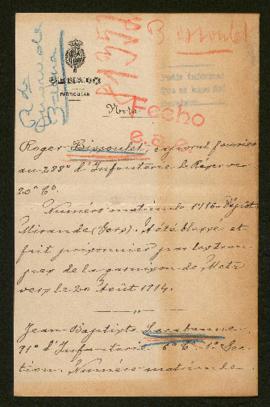 Bissoulet
SENADO
PARTICULAR
Nota
Fecho
Roger Bissoulet, caporal fourrier
au 288e d'Infanterie de Réserve
20e Cie
Numéro matricule 1716. Dépôt
Mirande (Gers). A été blessé et
fait prisonnier par les trou-
pes de la garnison de Metz
vers le 20 Août 1914.
Jean-Baptiste Lacabanne,
91e d'Infanterie 6e Cie 1e Sec-
tion. Numéro matricule